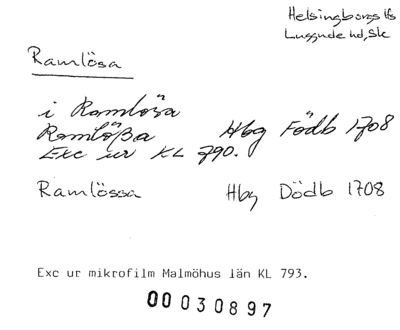 Helsingborgs lfs
Luggude hd, Sk
Ramlösa
i Ramlösa
Ramlößa Hbg Födb 1708
Exc ur KL 790.
Ramlössa Hbg Dödb 1708
Exc ur mikrofilm Malmöhus län KL 793.
00030897